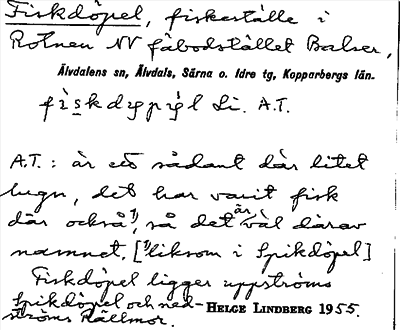 Fiskdöpel, fiskeställe i
Rotnen NV fäbodstället Balser,
Älvdalens sn, Älvdals, Särna o. Idre tg, Kopparbergs län.
A.T.
A.T.: är ett sådant där litet
lugn, det har varit fisk
där också¹⁾, så det är väl därav
namnet. [¹⁾liksom i Spikdöpel]
Fiskdöpel ligger uppströms
Spikdöpel och ned-
HELGE LINDBERG 1955.
ströms Källmor.